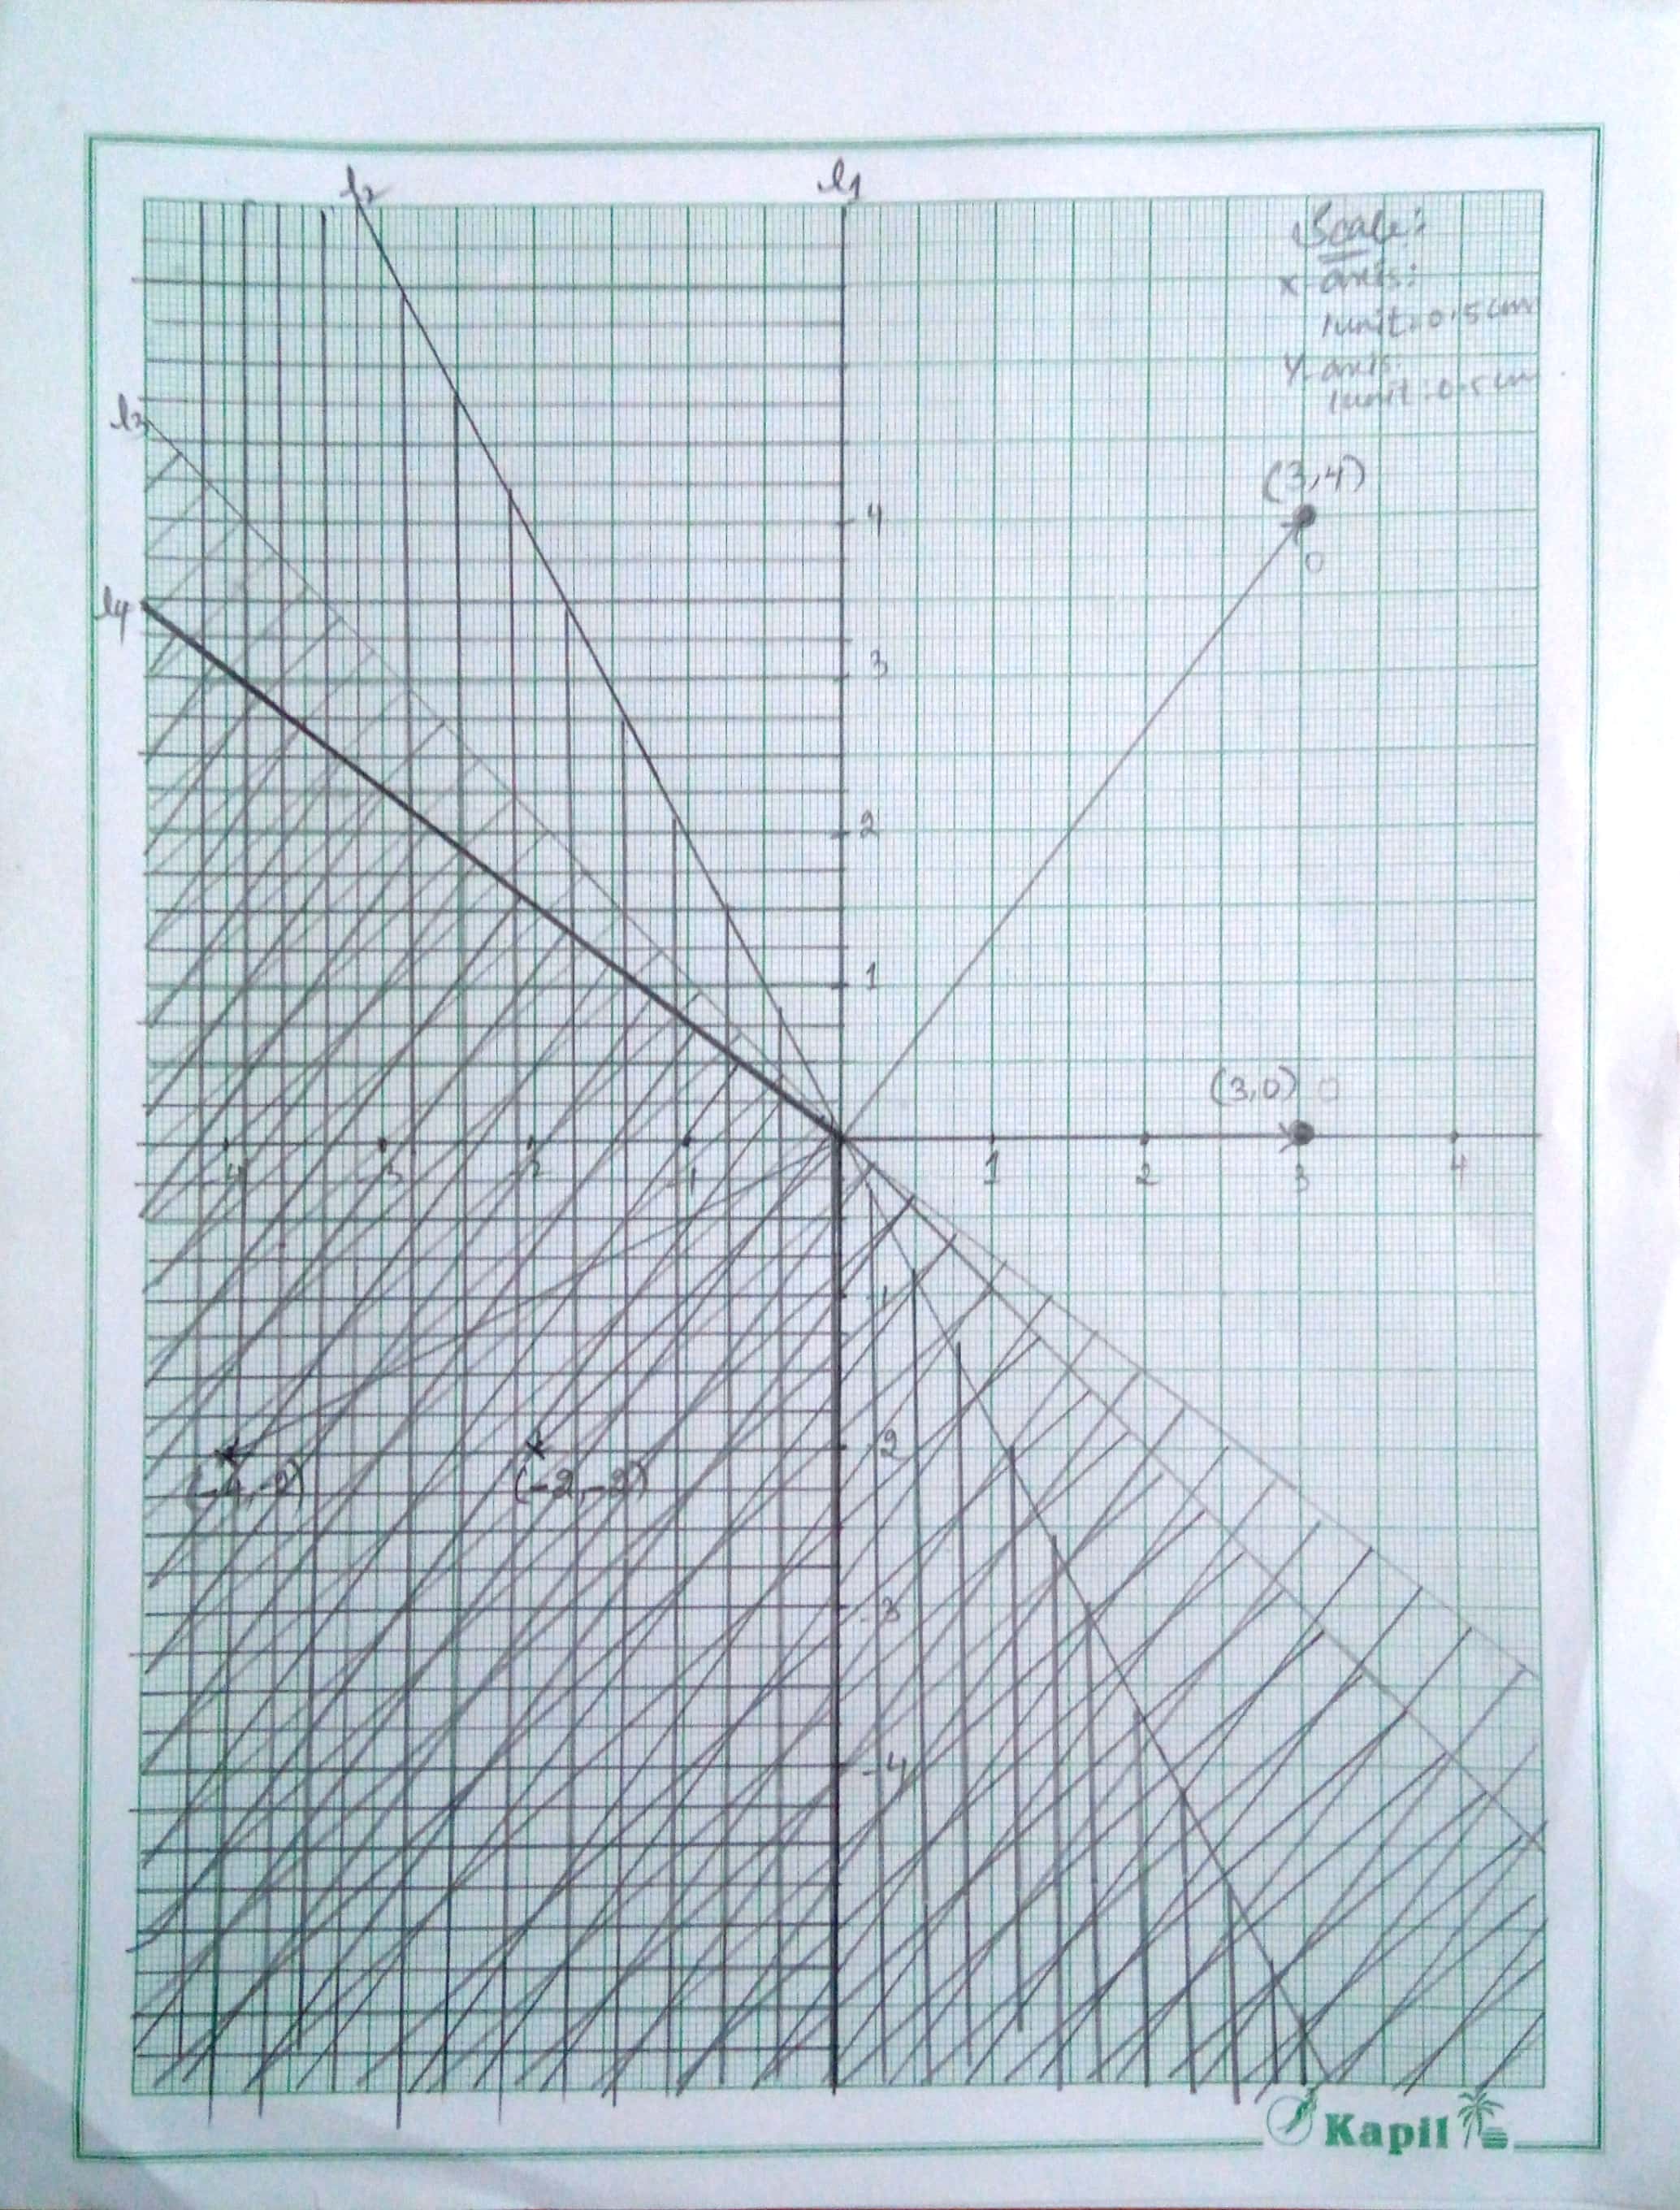 l2
l1
Scale:
x-axis:
1unit=0.5cm
Y-axis:
1unit:0.5cm
l3
(3,4)
4
0
l4
3
2
1
(3,0) 0
-4 -3 -2 -1 1 2 3 4
-1
-2
(-4,-2) (-2,-2)
-3
-4
Kapil